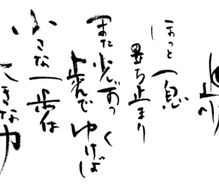 ほっと一息
立ち止まり
また少しずつ
歩んでゆけば
小さな一歩は
大きな力